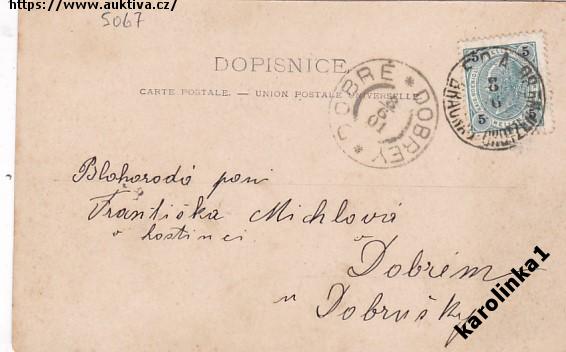 https://www.auktiva.cz/
5067
DOPISNICE.
CARTE POSTALE. — UNION POSTALE UNIVERSELLE.
DOBRÉ * DOBREY *
01
5 5
5
Blahorodá paní
Františka Michlová
v hostinci
v Dobrém
u Dobrušky
karolinka1